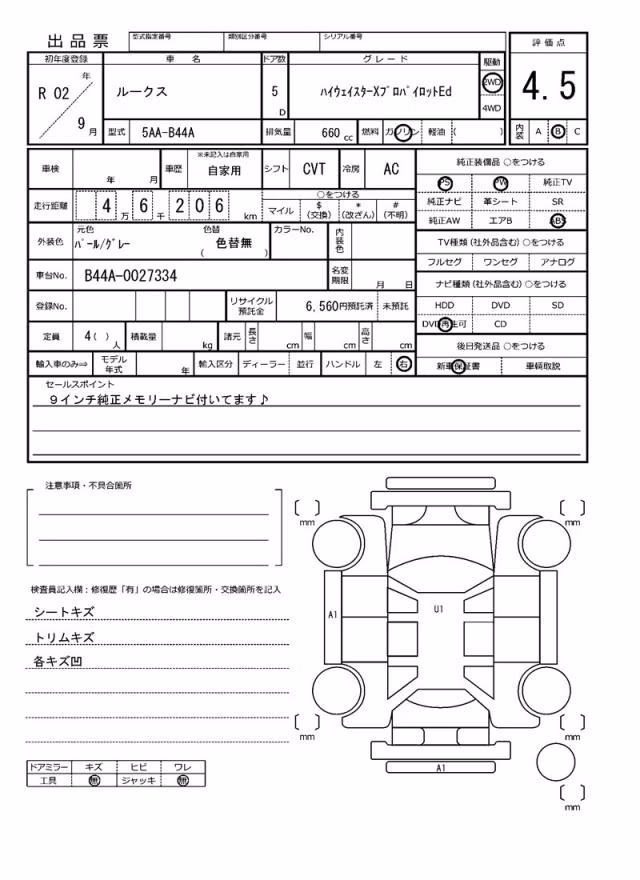 出品票 型式指定番号 類別区分番号 シリアル番号 評価点
初年度登録 車名 ドア数 グレード 駆動
R 02 年 9 月 ルークス 5 D ハイウェイスターXプロパイロットEd 2WD 4WD 4.5
型式 5AA-B44A 排気量 660 cc 燃料 ガソリン 軽油 ( ) 内装 A B C
車検 年 月 車歴 ※未記入は自家用 自家用 シフト CVT 冷房 AC 純正装備品 ○をつける
PS PW 純正TV
走行距離 4 万 6 千 2 0 6 km ○をつける 純正ナビ 革シート SR
マイル $(交換) *(改ざん) #(不明) 純正AW エアB ABS
外装色 元色 パール/グレー 色替 ( 色替無 ) カラーNo. 内装色 TV種類 (社外品含む) ○をつける
フルセグ ワンセグ アナログ
車台No. B44A-0027334 名変期限 月 日 ナビ種類 (社外品含む) ○をつける
登録No. リサイクル預託金 6,560円預託済 未預託 HDD DVD SD
DVD再生可 CD
定員 4 ( ) 人 積載量 kg 諸元 長さ cm 幅 cm 高さ cm 後日発送品 ○をつける
輸入車のみ⇒ モデル年式 年 輸入区分 ディーラー 並行 ハンドル 左 右 新車保証書 車輌取説
セールスポイント
9インチ純正メモリーナビ付いてます♪
注意事項・不具合箇所
mm mm
検査員記入欄：修復歴「有」の場合は修復箇所・交換箇所を記入
シートキズ A1 U1
トリムキズ
各キズ凹
mm mm
ドアミラー キズ ヒビ ワレ A1
工具 無 ジャッキ 無
mm